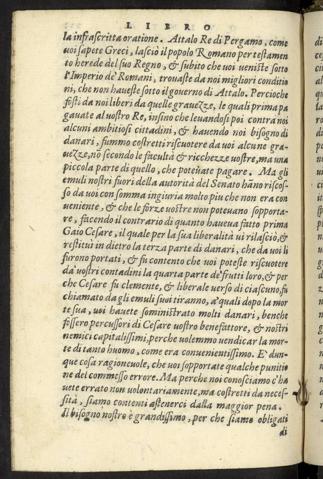 LIBRO
la infrascritta oratione. Attalo Re di Pergamo, come
voi sapete Greci, lasciò il popolo Romano per testamen
to herede del suo Regno, & subito che voi veniste sotto
l'Imperio de' Romani, trovaste da noi migliori conditio
ni, che non haveste sotto il governo di Attalo. Percioche
fosti da noi liberi da quelle gravezze, le quali prima pa
gavate al vostro Re, insino che levandosi poi contra noi
alcuni ambitiosi cittadini, & havendo noi bisogno di
danari, fummo costretti riscuotere da voi alcune gra-
vezze, nō secondo le facultà & ricchezze vostre, ma una
piccola parte di quello, che potevate pagare. Ma gli
emuli nostri fuori della autorità del Senato hāno riscos-
so da voi con somma ingiuria molto piu che non era con
veniente, & che le forze vostre non potevano sopporta-
re, facendo il contrario di quanto haveva fatto prima
Gaio Cesare, il quale per la sua liberalità vi rilasciò, &
restituì in dietro la terza parte di danari, che da voi li
furono portati, & fu contento che voi poteste riscuotere
da vostri contadini la quarta parte de' frutti loro, & per
che Cesare fu clemente, & liberale verso di ciascuno, fu
chiamato da gli emuli suoi tiranno, a' quali dopo la mor
te sua, voi havete sōministrato molti danari, benche
fossero percussori di Cesare vostro benefattore, & nostri
nemici capitalissimi, perche volemmo vendicar la mor-
te di tanto huomo, come era convenientissimo. E' dun-
que cosa ragionevole, che voi sopportate qualche punitio
ne del commesso errore. Ma perche noi conosciamo c'ha
vete errato non volontariamente, ma costretti da neces-
sità, siamo contenti astenerci dalla maggior pena.
Il bisogno nostro è grandissimo, per che siamo obligati
di